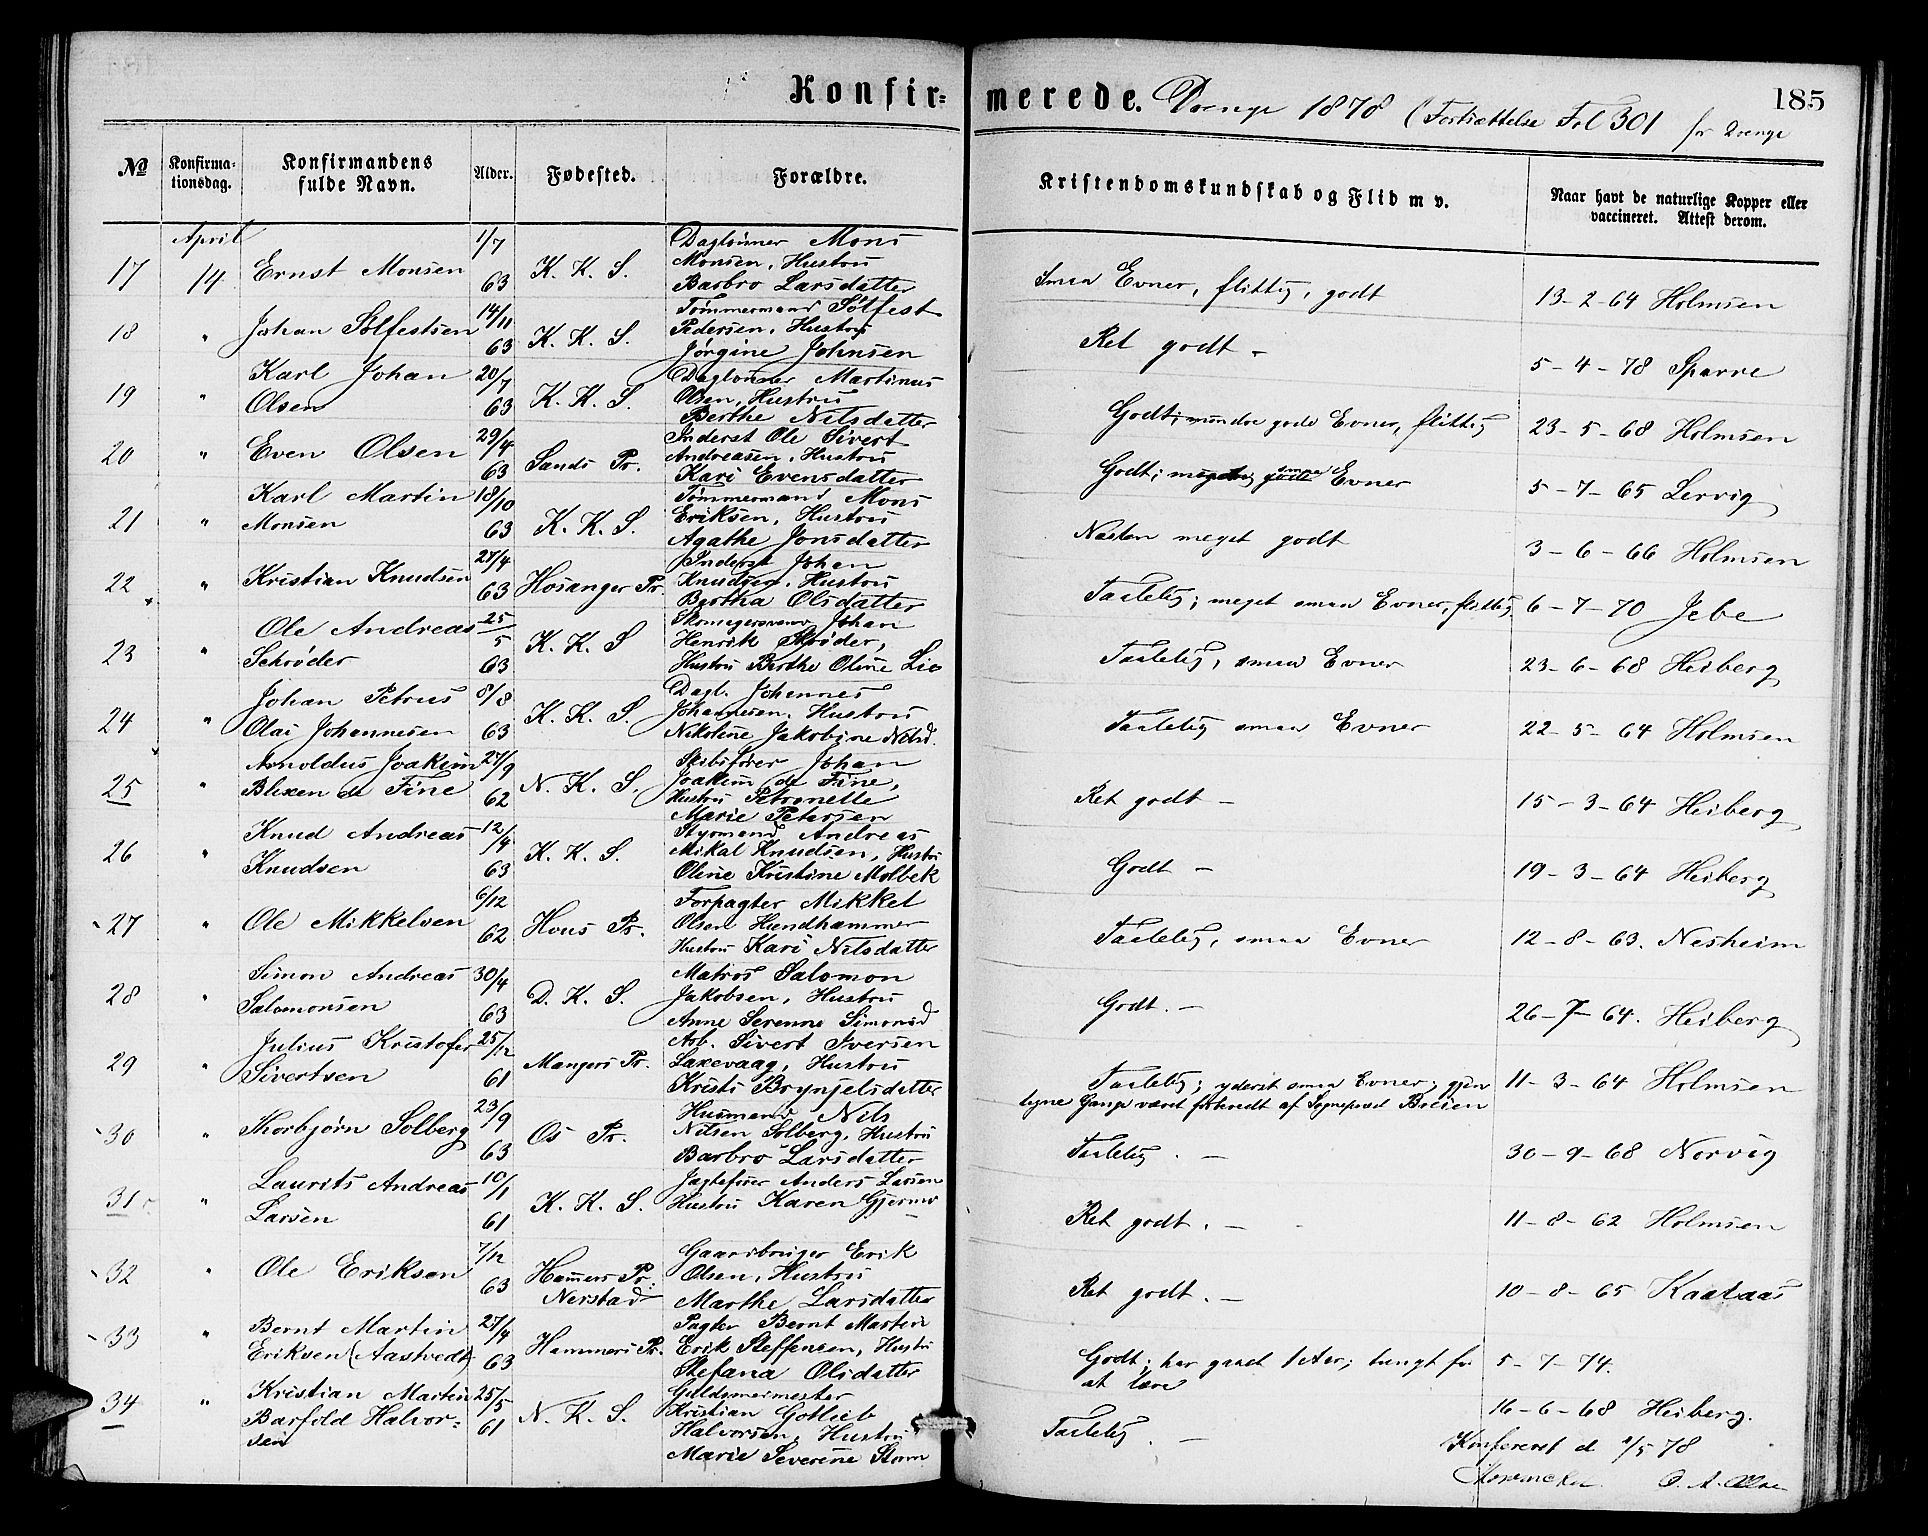 Konfirmerede. Drenge 1878 (Fortsættelse Fol 301 for Drenge
185
№ Konfirmationsdag. Konfirmandens fulde Navn. Alder. Fødested. Forældre. Kristendomskundskab og Flid m v. Naar havt de naturlige Kopper eller vaccineret. Attest derom.
April 1/7 Daglønner Mons
17 14 Ernst Monsen 63 K. K. S. Monsen, Hustru Barbro Larsdatter Smaa Evner, flittig, godt 13-2-64 Holmsen
18 " Johan Sølfestsen 14/11 63 K. K. S. Tømmermand Sølfest Pedersen, Hustru Jørgine Johnsen Ret godt - 5-4-78 Sparre
19 " Karl Johan Olsen 20/7 63 K. K. S. Daglønner Martinus Olsen, Hustru Berthe Nilsdatter Godt; mindre gode Evner, flittig 23-5-68 Holmsen
20 " Even Olsen 29/4 63 Sands Pr. Inderst Ole Sivert Andreasen, Hustru Kari Evensdatter Godt; smaa Evner 5-7-65 Lervig
21 " Karl Martin Monsen 18/10 63 K. K. S. Tømmermand Mons Eriksen, Hustru Agathe Jonsdatter Næsten meget godt 3-6-66 Holmsen
22 " Kristian Knudsen 27/4 63 Hosanger Pr. Inderst Johan Knudsen, Hustru Bertha Olsdatter Taalelig; meget smaa Evner, flittig 6-7-70 Jebe
23 " Ole Andreas Schrøder 25/5 63 K. K. S Skomagersvend Johan Henrik Schrøder, Hustru Berthe Oline Lie Taalelig, smaa Evner 23-6-68 Heiberg
24 " Johan Petrus Olai Johannesen 8/8 63 K. K. S. Dagl. Johannes Johannesen, Hustru Nikoline Jakobine Nilsd. Taalelig smaa Evner 22-5-64 Holmsen
25 " Arnoldus Joakim Blixen de Fine 27/9 62 N. K. S. Skibsfører Johan Joakim de Fine, Hustru Petronelle Marie Petersen Ret godt - 15-3-64 Heiberg
26 " Knud Andreas Knudsen 12/4 63 K. K. S. Styrmand Andreas Mikal Knudsen, Hustru Oline Kristine Molbek Godt - 19-3-64 Heiberg
27 " Ole Mikkelsen 6/12 62 Hous Pr. Forpagter Mikkel Olsen Hundhammer Hustru Kari Nilsdatter Taalelig, smaa Evner 12-8-63. Nesheim
28 " Simon Andreas Salomonsen 30/4 63 D. K. S. Matros Salomon Jakobsen, Hustru Anne Serenne Simonsd Godt. - 26-7-64. Heiberg
29 " Julius Kristofer Sivertsen 25/12 61 Mangers Pr. Arb. Sivert Iversen Laxevaag, Hustru Kristi Brynjelsdatter Taalelig; yderst smaa Evner; gjen tagne Gange været forhørdt af Sognepræst Breien 11-3-64 Holmsen
30 " Thorbjørn Solberg 23/9 63 Os Pr. Husmand Nils Nilsen Solberg, Hustru Barbro Larsdatter Taalelig. - 30-9-68 Norvig
31 " Laurits Andreas Larsen 10/1 61 K. K. S. Jagtefører Anders Larsen Hustru Karen Gjermo Ret godt. - 11-8-62 Holmsen
32 " Ole Eriksen 7/12 63 Hammers Pr. Nerstad Gaardbruger Erik Olsen, Hustru Marthe Larsdatter Ret godt. - 10-8-65 Kaataas
33 " Bernt Martin Eriksen (Aastvedt) 27/4 63 Hammers Pr. Pagter Bernt Martin Erik Steffensen, Hustru Stefana Olsdatter Godt; har gaaet 1 Aar; tungt for at lære 5-7-74.
34 " Kristian Martin Barfold Halvorsen 25/5 61 N. K. S. Guldsmedmester Kristian Gotlieb Halvorsen, Hustru Marie Severine Storm Taalelig. - 16-6-68 Heiberg.
Konfereret d 1/5 78